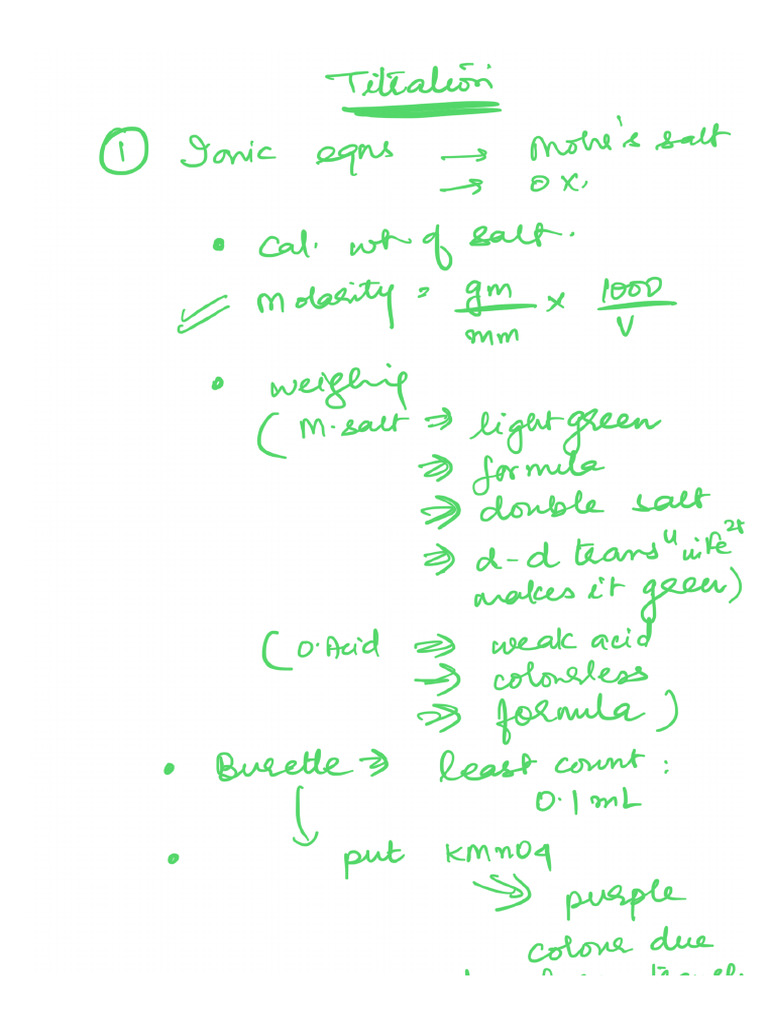 Titration
① Ionic eqns → Mohr's salt
→ ox.
• Cal. wt of salt.
Molarity = gm/mm × 1000/V
• weighing
(M. salt ⇒ light green
⇒ formula
⇒ double salt
⇒ d-d transⁿ in Fe²⁺
makes it green)
(O. Acid ⇒ weak acid
→ colourless
⇒ formula)
• Burette → least count :
0.1 mL
• put KMnO4
⇒ purple
colour due